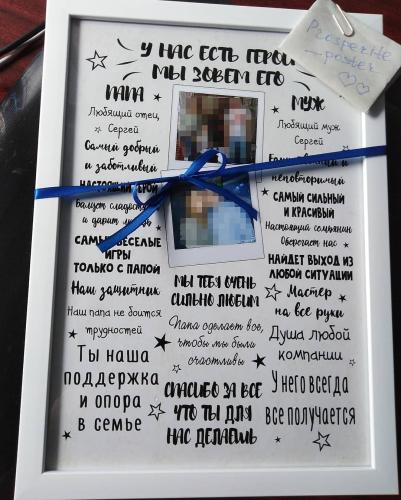 У НАС ЕСТЬ ГЕРОЙ
МЫ ЗОВЕМ ЕГО
Prosperite
poster
ПАПА
Любящий отец,
Сергей
Самый добрый
и заботливый
НАСТОЯЩИЙ ГЕРОЙ
Балует
и дарит
САМЫЕ ВЕСЕЛЫЕ
ИГРЫ
ТОЛЬКО С ПАПОЙ
Наш защитник
Наш папа не боится
трудностей
Ты наша
поддержка
и опора
в семье
МЫ ТЕБЯ ОЧЕНЬ
СИЛЬНО ЛЮБИМ
Папа сделает все,
чтобы мы были
счастливы
СПАСИБО ЗА ВСЕ
ЧТО ТЫ ДЛЯ
НАС ДЕЛАЕШЬ
МУЖ
Любящий муж
Сергей
и
неповторимый
САМЫЙ СИЛЬНЫЙ
И КРАСИВЫЙ
Настоящий семьянин
Оберегает нас
НАЙДЕТ ВЫХОД ИЗ
ЛЮБОЙ СИТУАЦИИ
Мастер
на все руки
Душа любой
компании
У него всегда
все получается